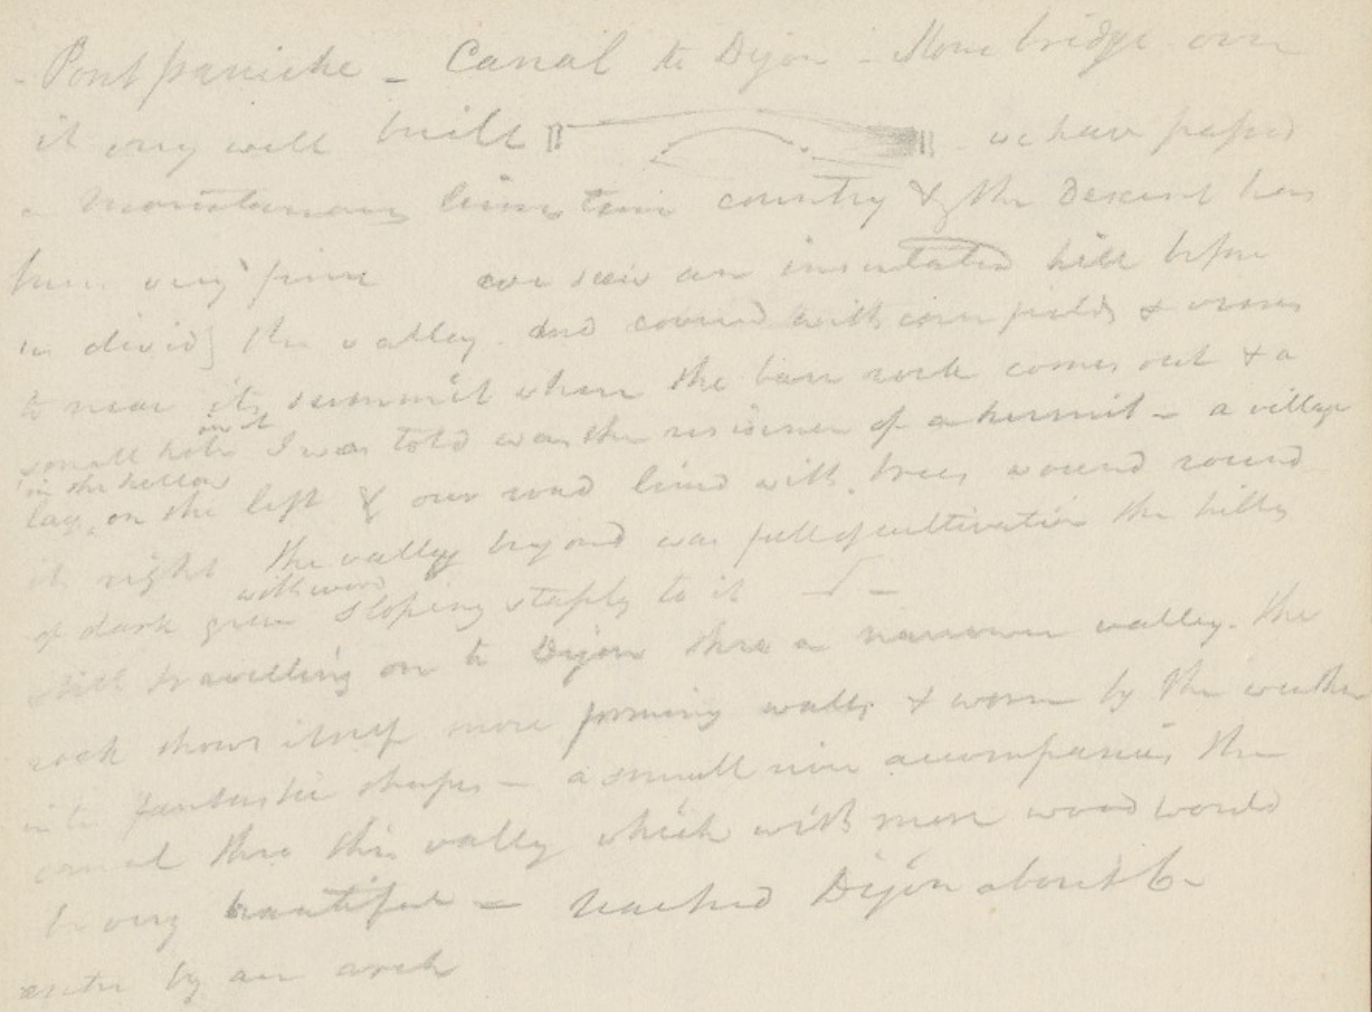 - Pont panicke - Canal to Dijon - Stone bridge over
it very well built we have passed
a mountainous limestone country & the descent has
been very fine we saw an insulated hill before
us divid] the valley. and covered with corn fields & vines
to near its summit where the bare rock comes out & a
small hole in it I was told was the residence of a hermit - a village
lay in the hollow on the left & our road lined with trees wound round
it right the valley beyond was full of cultivation the hills
of dark green with wood sloping steeply to it -
still travelling on to Dijon thro a narrower valley. the
rock shows itself more forming walls & worn by the weather
into fantastic shapes - a small river accompanies the
canal thro this valley which with more wood would
be very beautiful - reached Dijon about 6 -
enter by an arch